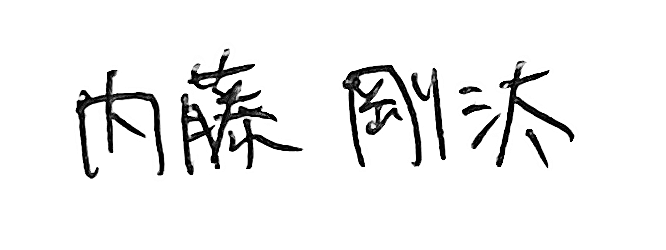 内藤 剛汰